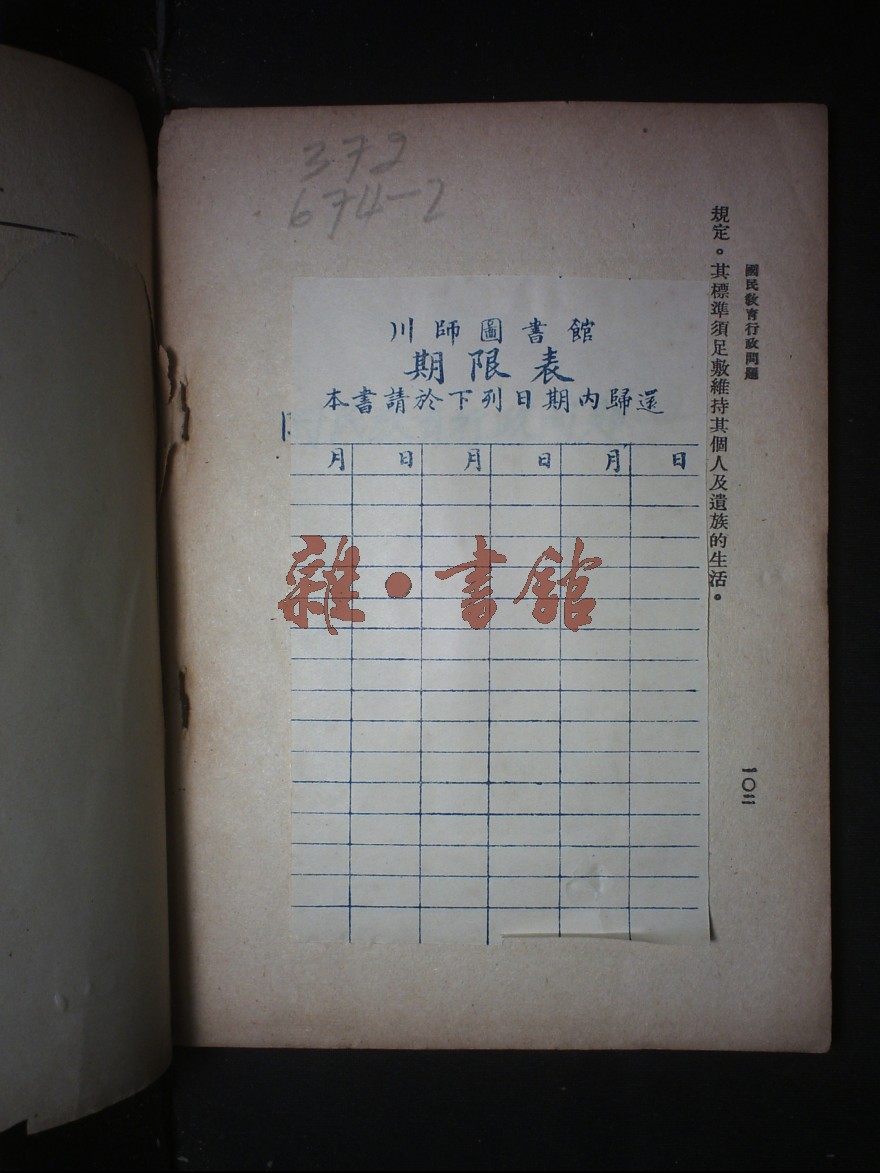 372
674-2
國民教育行政問題
規定。其標準須足敷維持其個人及遺族的生活。
一〇二
川師圖書館
期限表
本書請於下列日期內歸還
月 日 月 日 月 日
雜·書館